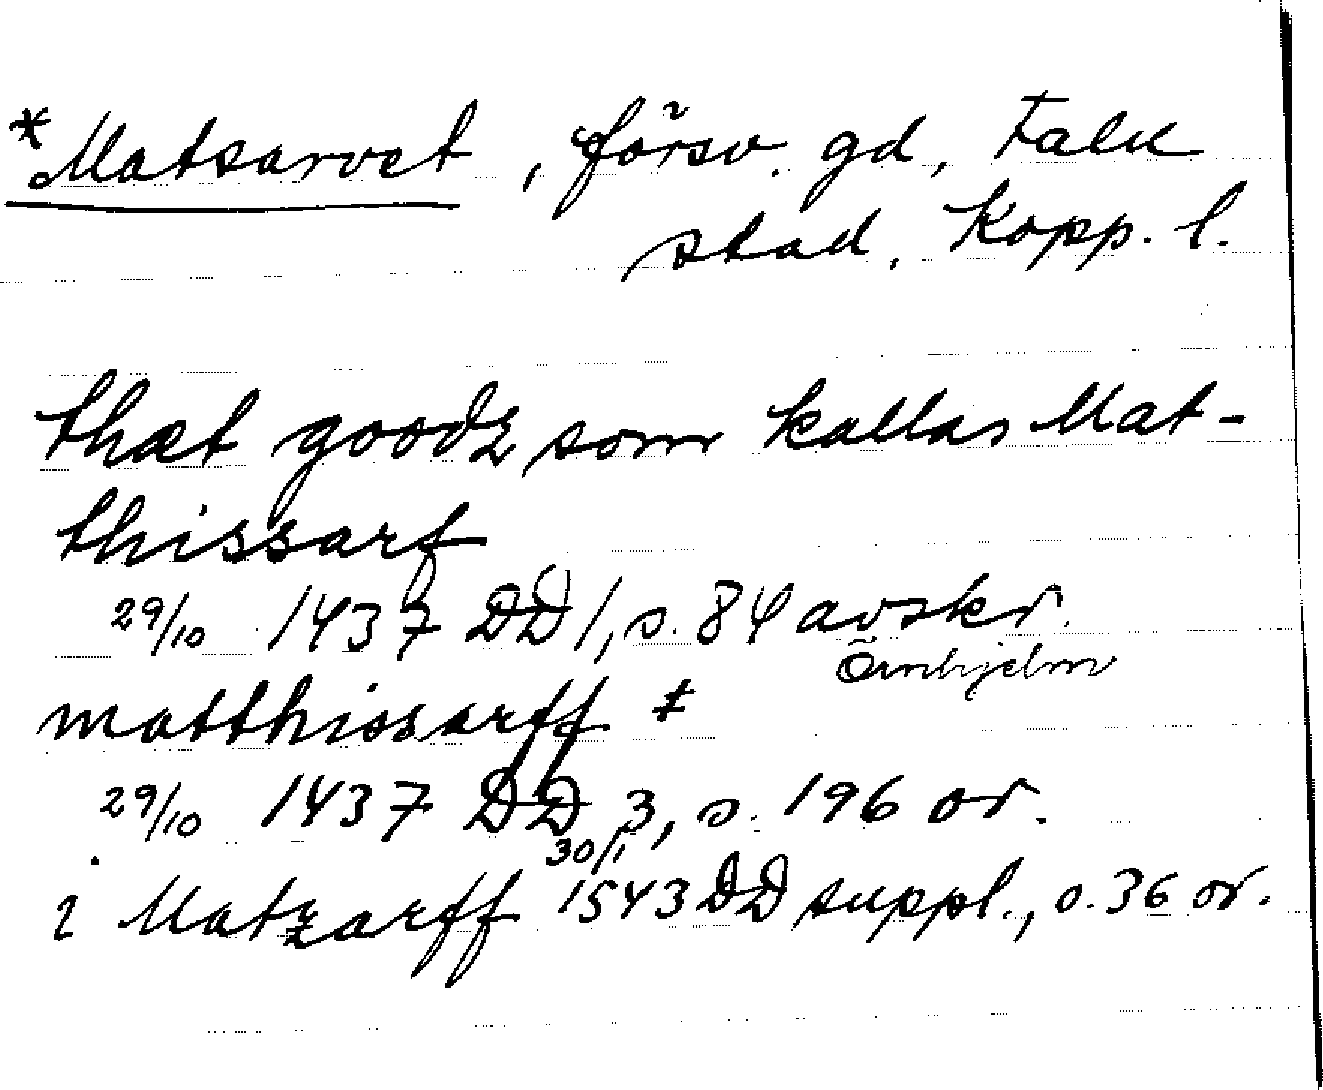 *Matsarvet, försv. gd, Falu
stad, Kopp. l.
thæt goodz som kallas Mat-
thissarf
29/10 1437 DD 1, s. 84 avskr.
Örnhjelm
matthissarff ‡
29/10 1437 DD 3, s. 196 or.
30/1
i Matzarff 1543 DD suppl., s. 36 or.